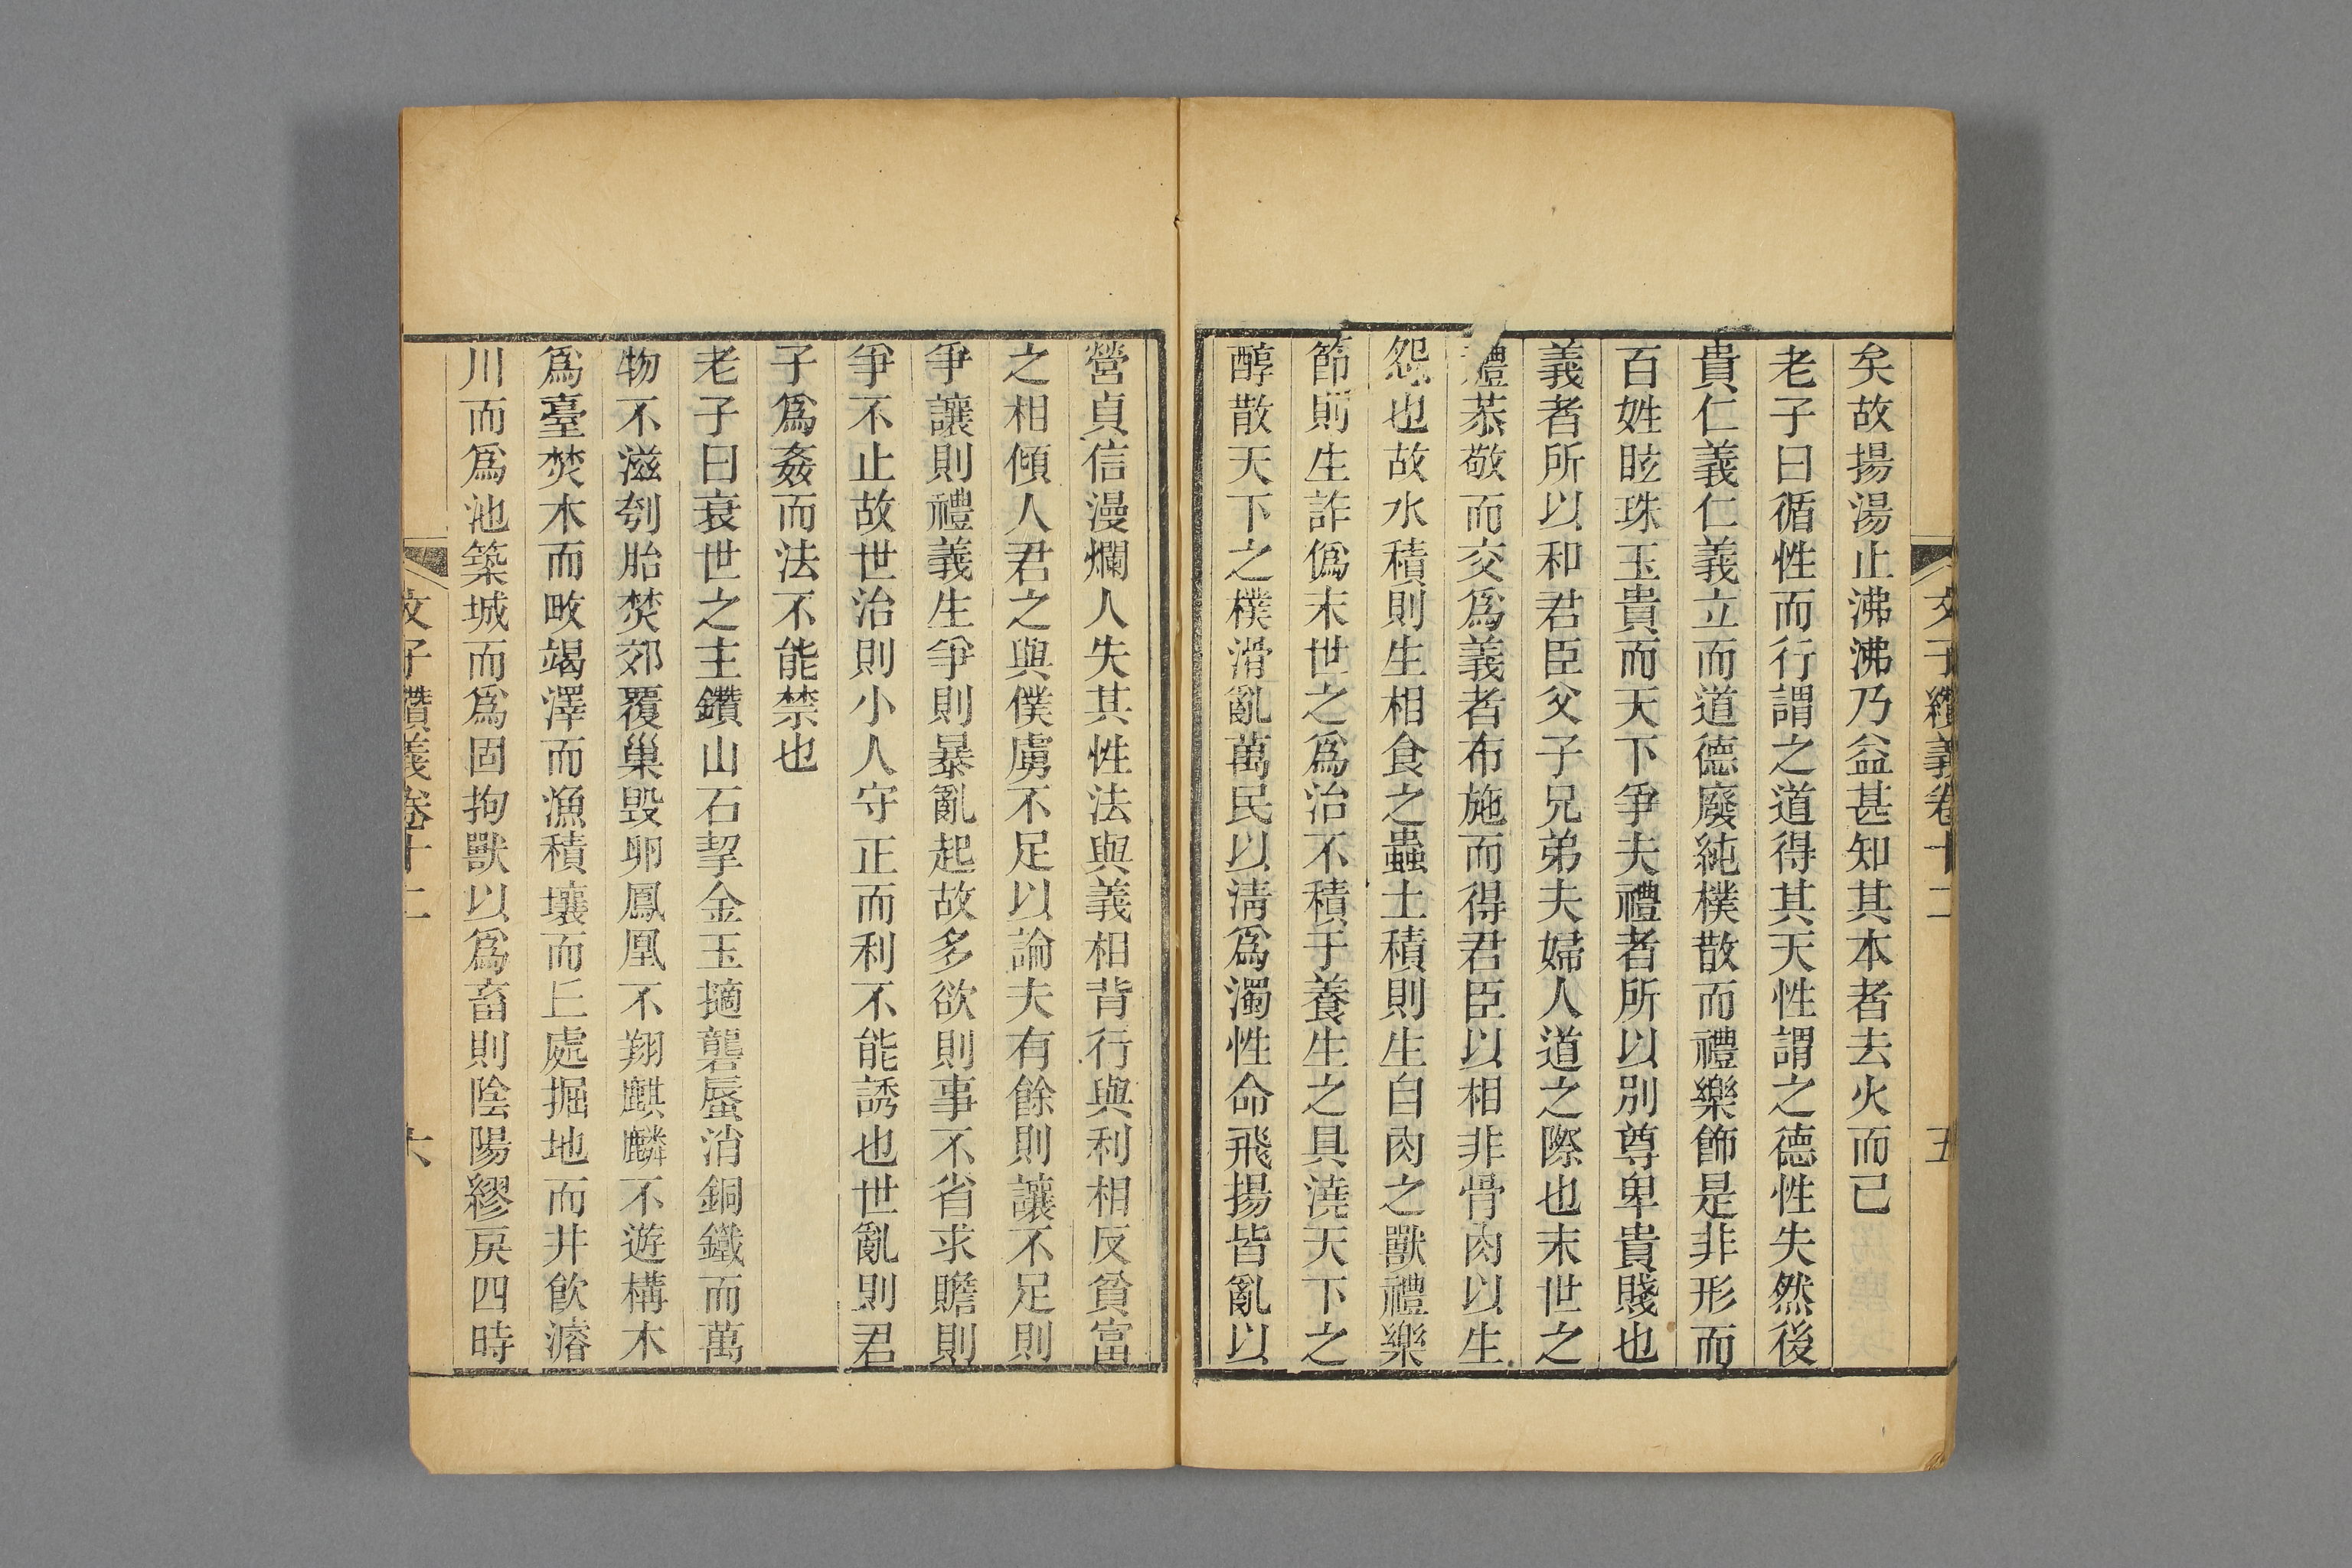 文子纘義卷十二
五
矣故揚湯止沸沸乃益甚知其本者去火而已
老子曰循性而行謂之道得其天性謂之德性失然後
貴仁義仁義立而道德廢純樸散而禮樂飾是非形而
百姓眩珠玉貴而天下爭夫禮者所以別尊卑貴賤也
義者所以和君臣父子兄弟夫婦人道之際也末世之
禮恭敬而交爲義者布施而得君臣以相非骨肉以生
怨也故水積則生相食之蟲土積則生自肉之獸禮樂
節則生詐僞末世之爲治不積于養生之具澆天下之
醇散天下之樸滑亂萬民以淸爲濁性命飛揚皆亂以
營貞信漫爛人失其性法與義相背行與利相反貧富
之相傾人君之與僕虜不足以論夫有餘則讓不足則
爭讓則禮義生爭則暴亂起故多欲則事不省求贍則
爭不止故世治則小人守正而利不能誘也世亂則君
子爲姦而法不能禁也
老子曰衰世之主鑽山石挈金玉擿礱蜃消銅鐵而萬
物不滋刳胎焚郊覆巢毁卵鳳凰不翔麒麟不遊構木
爲臺焚木而畋竭澤而漁積壤而丘處掘地而井飮濬
川而爲池築城而爲固拘獸以爲畜則陰陽繆戾四時
文子纘義卷十二
六